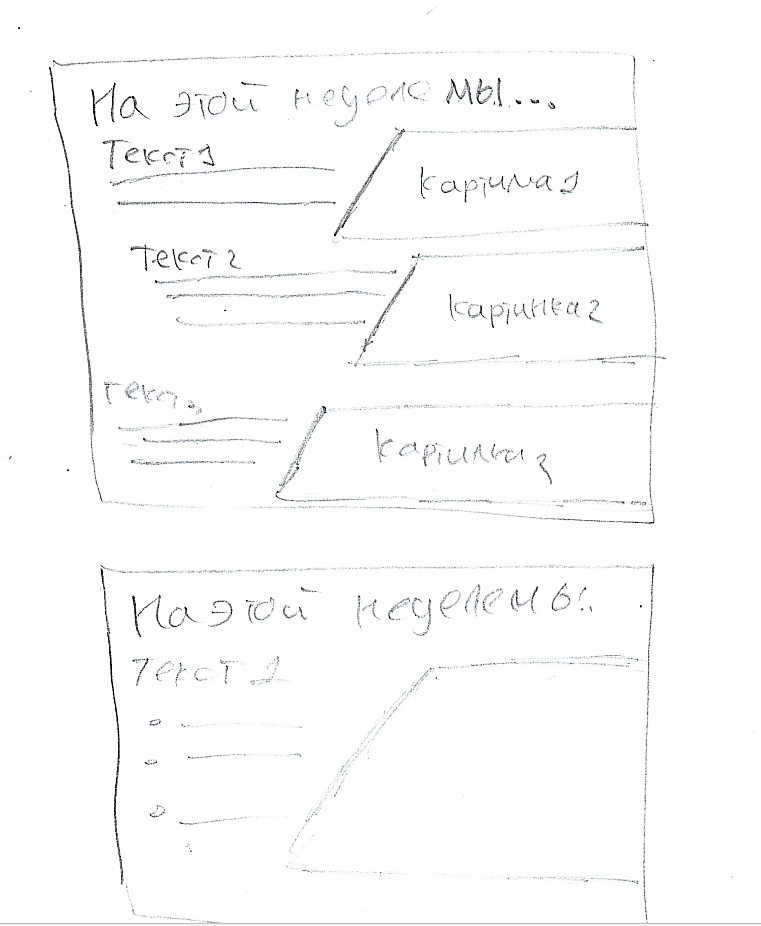 На этой неделе мы...
Текст 1
Картинка 1
Текст 2
Картинка 2
Текст 3
Картинка 3
На этой неделе мы..
Текст 1